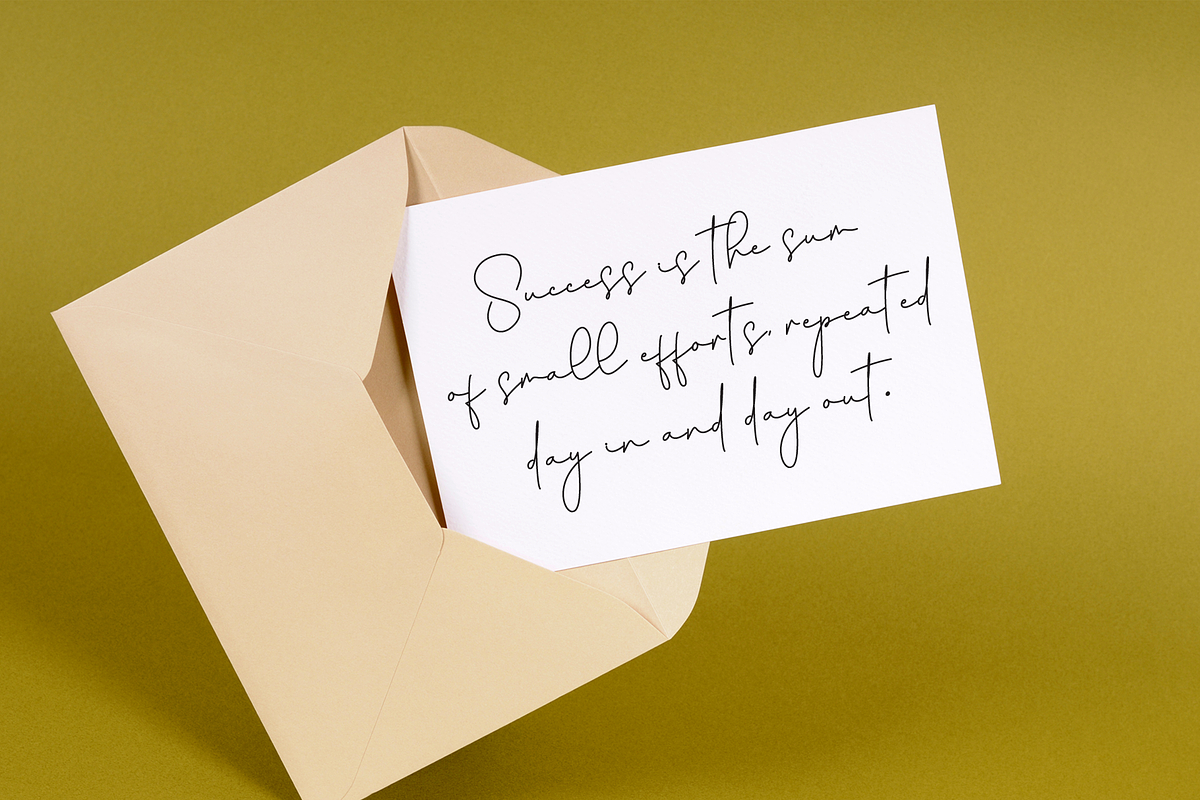 Success is the sum
of small efforts, repeated
day in and day out.